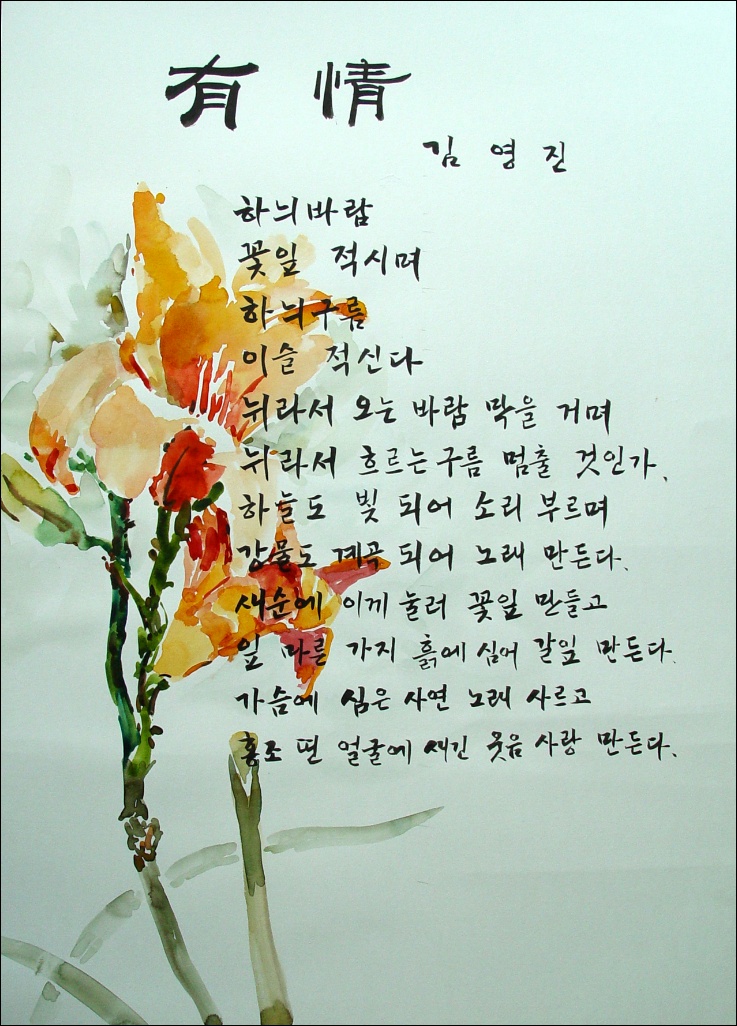 有情
김영진
하늬바람
꽃잎 적시며
하늬구름
이슬 적신다
뉘라서 오는 바람 막을 거며
뉘라서 흐르는 구름 멈출 것인가.
하늘도 빛 되어 소리 부르며
강물도 계곡 되어 노래 만든다.
새순에 이끼 눌러 꽃잎 만들고
잎 마른 가지 흙에 심어 갈잎 만든다.
가슴에 심은 사연 노래 사르고
홍조 띤 얼굴에 새긴 웃음 사랑 만든다.